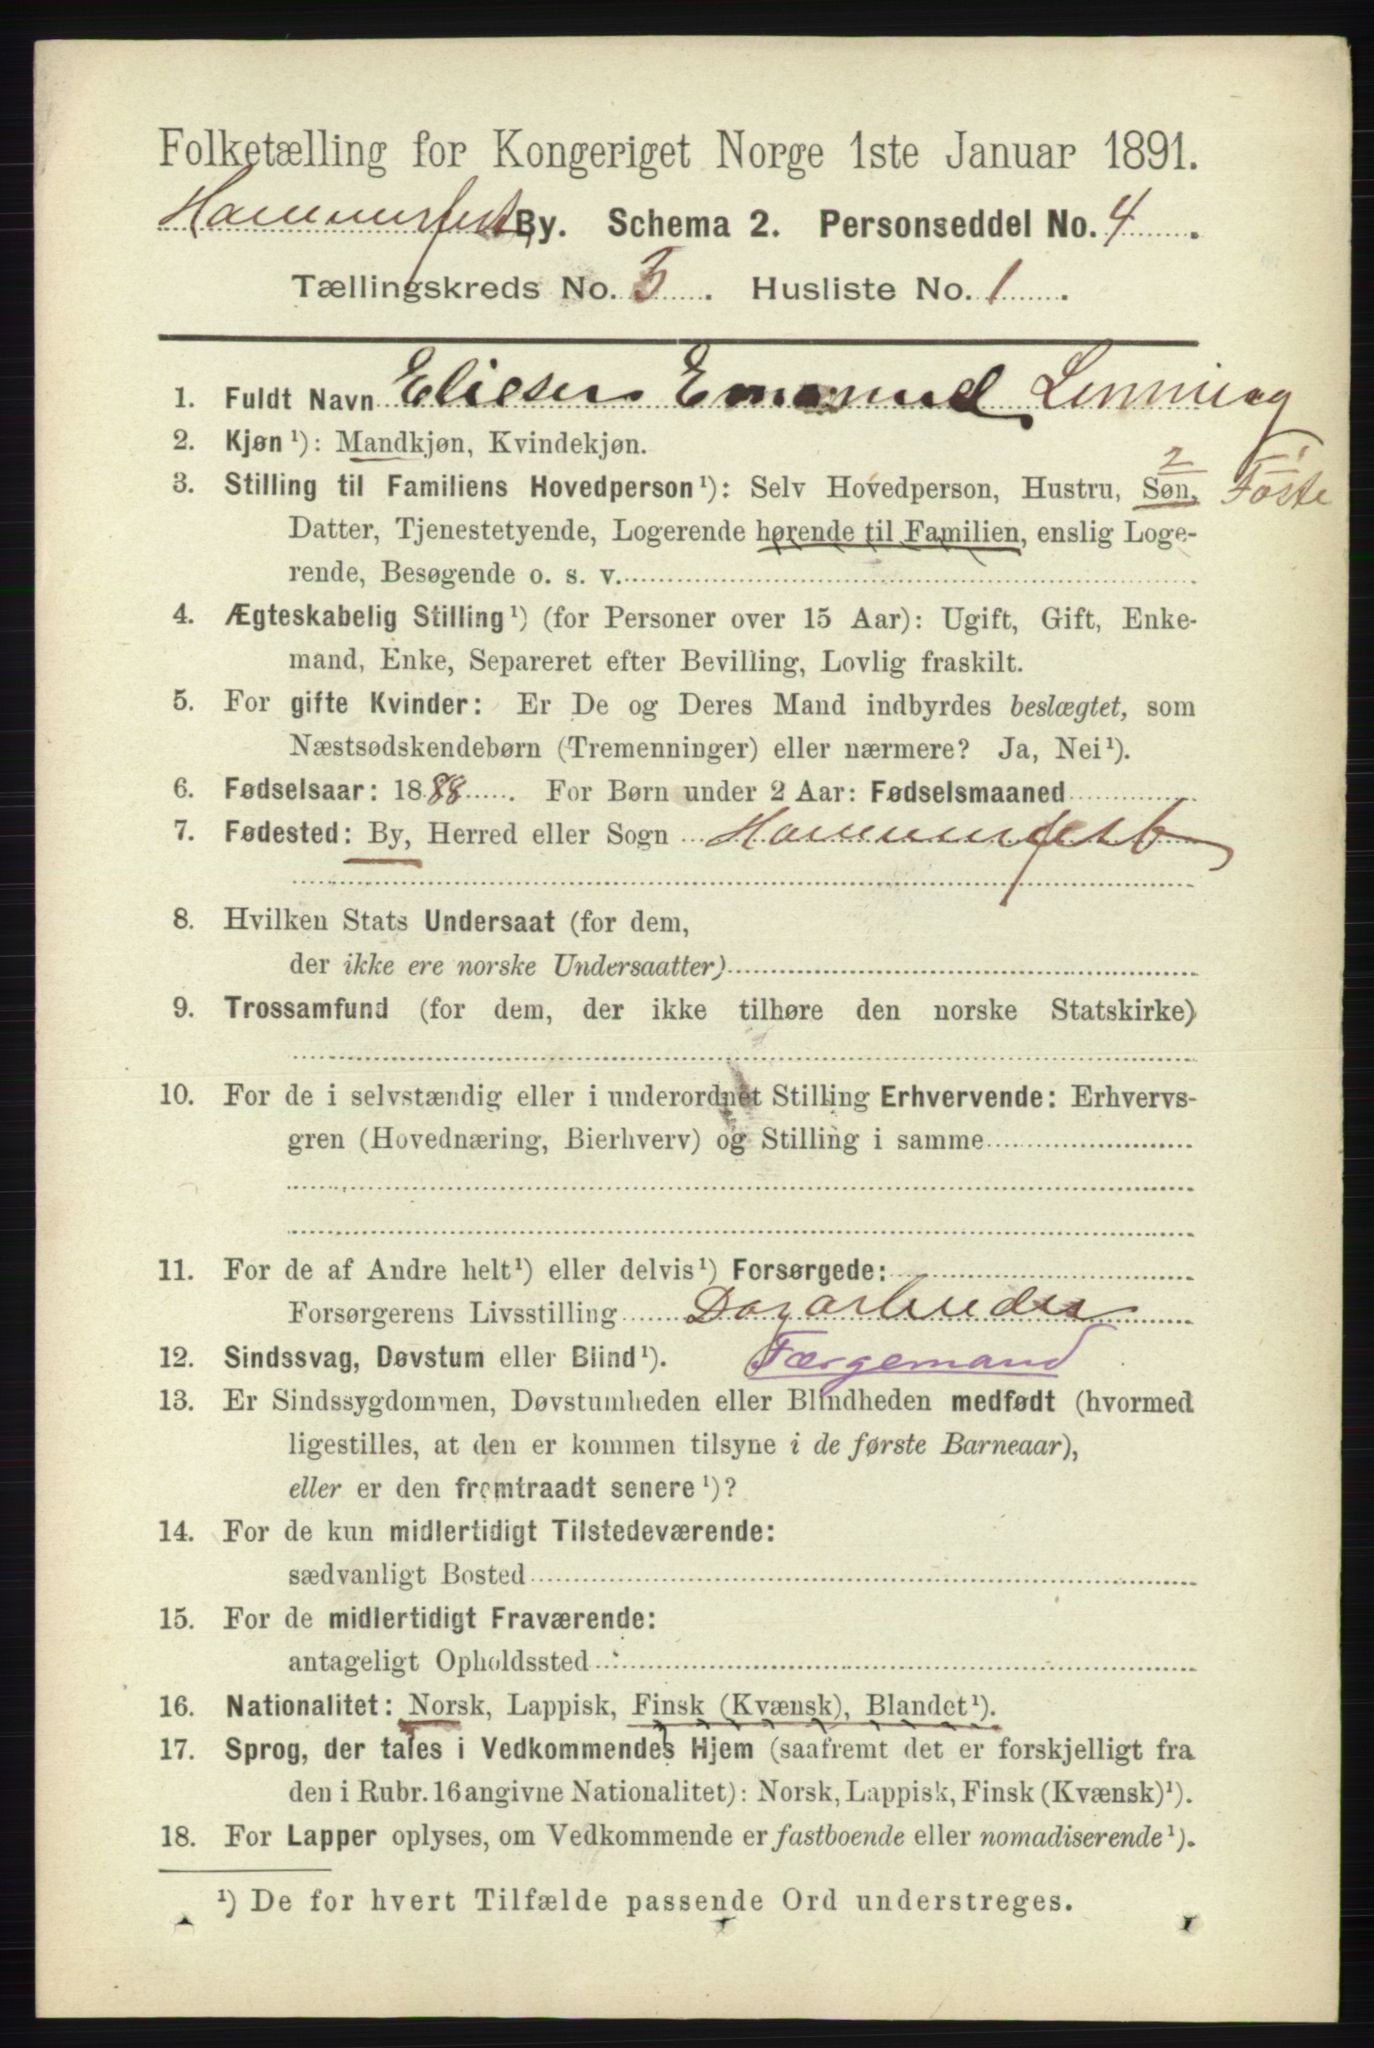 Folketælling for Kongeriget Norge 1ste Januar 1891.
Hammerfest By. Schema 2. Personseddel No. 4.
Tællingskreds No. 3. Husliste No. 1.
1. Fuldt Navn Elieser Emanuel
2. Kjøn¹): Mandkjøn, Kvindekjøn.
2 1
3. Stilling til Familiens Hovedperson¹): Selv Hovedperson, Hustru, Søn, Foste
Datter, Tjenestetyende, Logerende hørende til Familien, enslig Loge-
rende, Besøgende o. s. v.
4. Ægteskabelig Stilling¹) (for Personer over 15 Aar): Ugift, Gift, Enke-
mand, Enke, Separeret efter Bevilling, Lovlig fraskilt.
5. For gifte Kvinder: Er De og Deres Mand indbyrdes beslægtet, som
Næstsødskendebørn (Tremenninger) eller nærmere? Ja, Nei¹).
6. Fødselsaar: 1888. For Børn under 2 Aar: Fødselsmaaned
7. Fødested: By, Herred eller Sogn Hammerfest
8. Hvilken Stats Undersaat (for dem,
der ikke ere norske Undersaatter)
9. Trossamfund (for dem, der ikke tilhøre den norske Statskirke)
10. For de i selvstændig eller i underordnet Stilling Erhvervende: Erhvervs-
gren (Hovednæring, Bierhverv) og Stilling i samme
11. For de af Andre helt¹) eller delvis¹) Forsørgede:
Forsørgerens Livsstilling Dagarbeider
12. Sindssvag, Døvstum eller Blind¹). Færgemand
13. Er Sindssygdommen, Døvstumheden eller Blindheden medfødt (hvormed
ligestilles, at den er kommen tilsyne i de første Barneaar),
eller er den fremtraadt senere¹)?
14. For de kun midlertidigt Tilstedeværende:
sædvanligt Bosted
15. For de midlertidigt Fraværende:
antageligt Opholdssted
16. Nationalitet: Norsk, Lappisk, Finsk (Kvænsk), Blandet¹).
17. Sprog, der tales i Vedkommendes Hjem (saafremt det er forskjelligt fra
den i Rubr. 16 angivne Nationalitet): Norsk, Lappisk, Finsk (Kvænsk)¹).
18. For Lapper oplyses, om Vedkommende er fastboende eller nomadiserende¹).
¹) De for hvert Tilfælde passende Ord understreges.